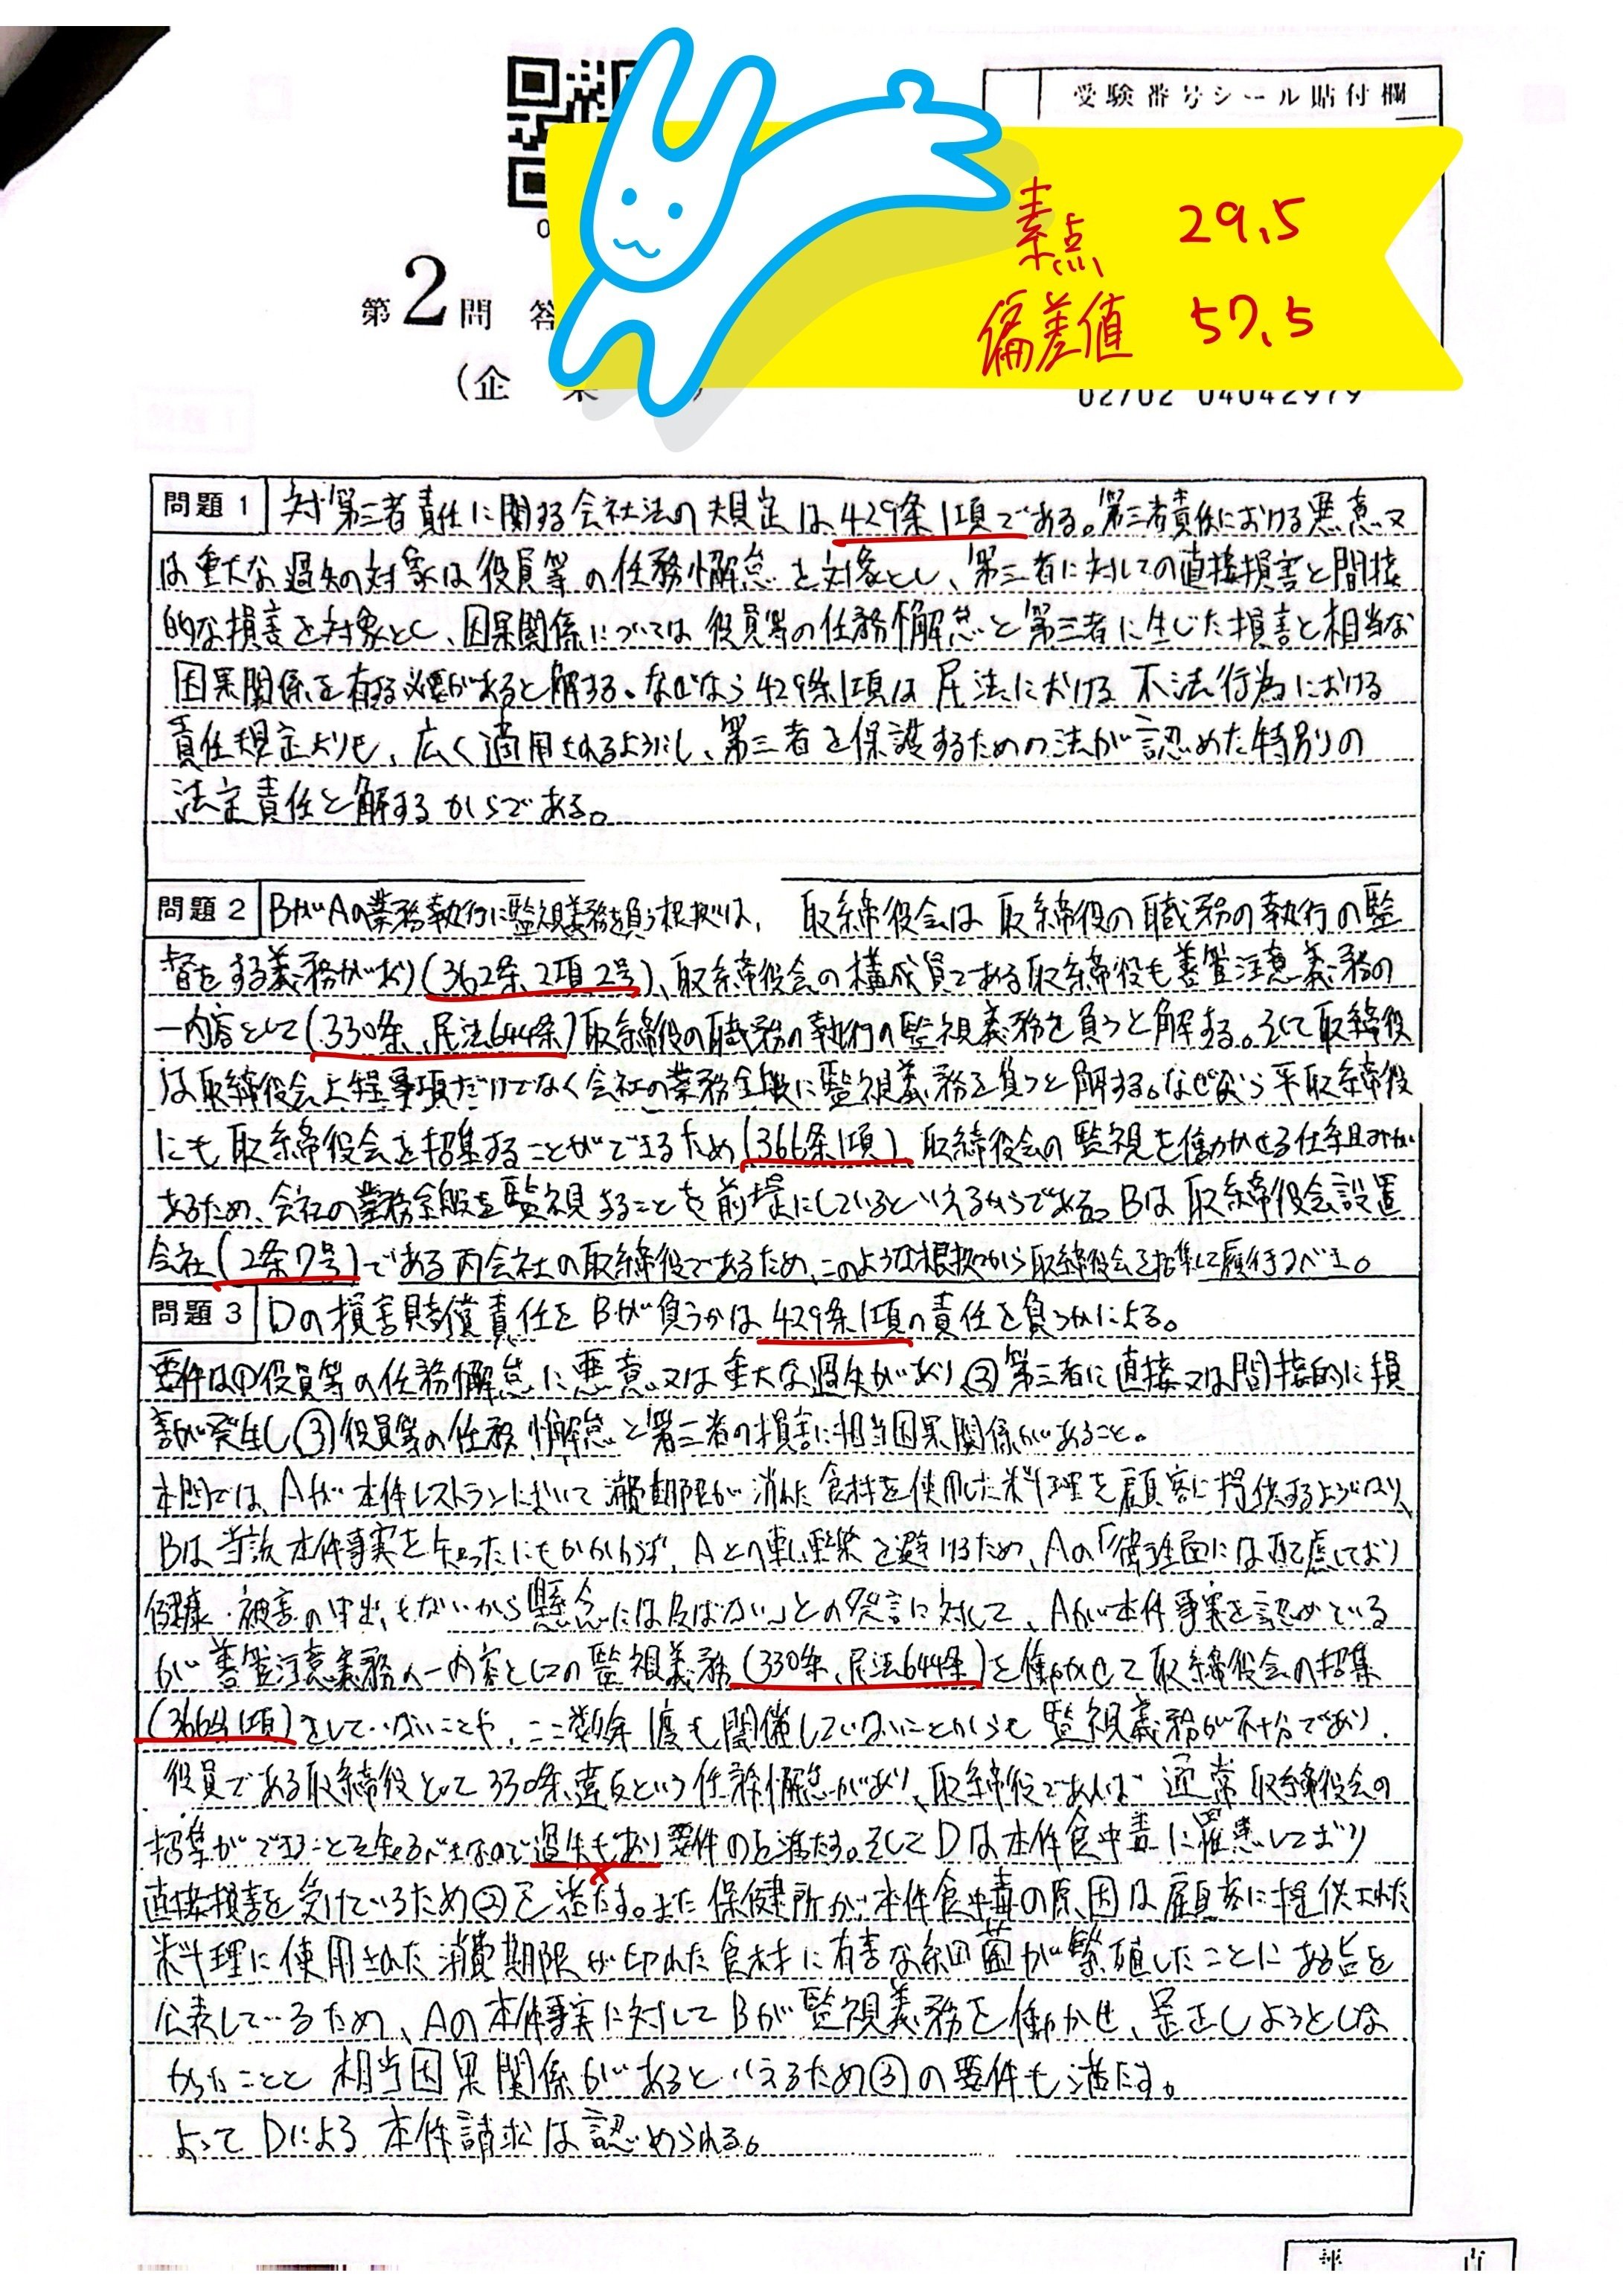 受験番号シール貼付欄
素点 29.5
偏差値 57.5
第2問 答
(企
02702 04042979
問題1 対第三者責任に関する会社法の規定は429条1項である。第三者責任における悪意又
は重大な過失の対象は役員等の任務懈怠を対象とし、第三者に対しての直接損害と間接
的な損害を対象とし、因果関係については役員等の任務懈怠と第三者に生じた損害と相当な
因果関係を有する必要があると解する。なぜなら429条1項は民法における不法行為における
責任規定よりも、広く適用されるようにし、第三者を保護するための法が認めた特別の
法定責任と解するからである。
問題2 BがAの業務執行に監視義務を負う根拠は、取締役会は取締役の職務の執行の監
督をする義務があり(362条2項2号)、取締役会の構成員である取締役も善管注意義務の
一内容として(330条、民法644条)取締役の職務の執行の監視義務を負うと解する。そして取締役
は取締役会上程事項だけでなく会社の業務全般に監視義務を負うと解する。なぜなら平取締役
にも取締役会を招集することができるため(366条1項)、取締役会の監視を働かせる仕組みが
あるため、会社の業務全般を監視することを前提にしているといえるからである。Bは取締役会設置
会社(2条7号)である丙会社の取締役であるため、このような根拠から取締役会を招集して履行すべき。
問題3 Dの損害賠償責任をBが負うかは429条1項の責任を負うかによる。
要件は①役員等の任務懈怠に悪意又は重大な過失があり②第三者に直接又は間接的に損
害が発生し③役員等の任務懈怠と第三者の損害に相当因果関係があること。
本問では、Aが本件レストランにおいて消費期限が 食材を使用した料理を顧客に提供するようになり、
Bは当該本件事実を知ったにもかかわらず、Aとの軋轢を避けるため、Aの「衛生面には配慮しており
健康 被害の申出もないから懸念には及ばない」との発言に対して、Aが本件事実を認めている
が善管注意義務の一内容としての監視義務(330条、民法644条)を働かせて取締役会の招集
(366条1項)をしていないことや、ここ数年1度も開催していないことからも監視義務が不十分であり、
役員である取締役として330条違反という任務懈怠があり、取締役であれば通常取締役会の
招集ができることを知るべきなので過失もあり要件の①を満たす。そしてDは本件食中毒に罹患しており
直接損害を受けているため②を満たす。また保健所が本件食中毒の原因は顧客に提供された
料理に使用された消費期限が切れた食材に有害な細菌が繁殖したことにある旨を
公表しているため、Aの本件事実に対してBが監視義務を働かせ、是正しようとしな
かったことと相当因果関係があるといえるため③の要件も満たす。
よってDによる本件請求は認められる。